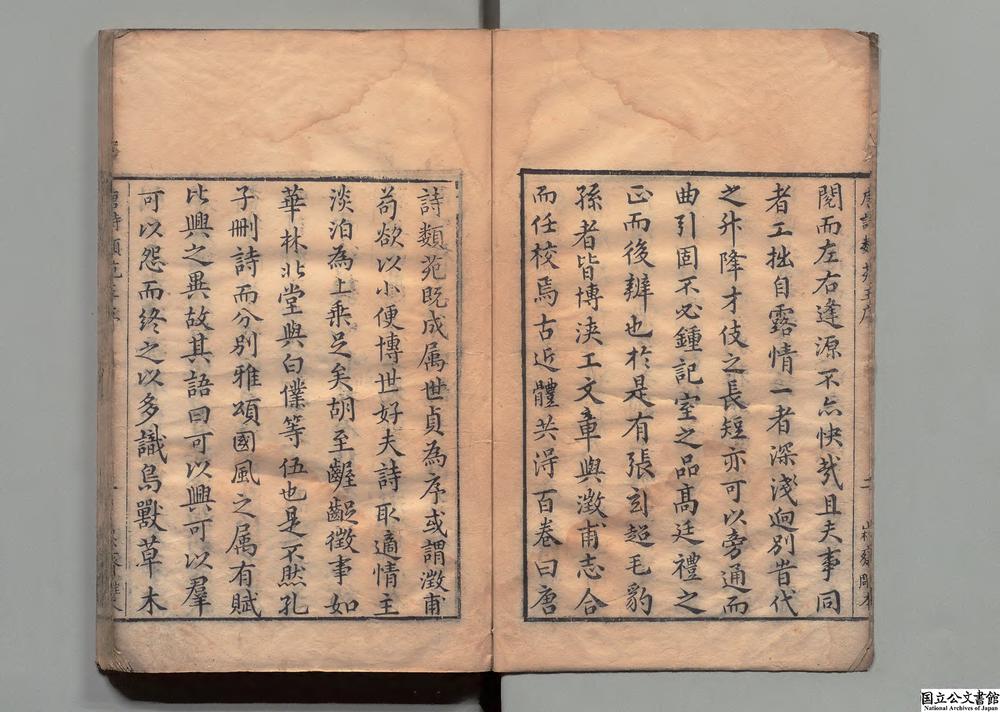 唐詩類苑王序
閱而左右逢源不亦快哉且夫事同
者工拙自露情一者深淺逈別昔代
之升降才伎之長短亦可以旁通而
曲引固不必鍾記室之品高廷禮之
正而後辨也於是有張玄超毛豹
孫者皆博浹工文章與澂甫志合
而任校焉古近體共淂百卷曰唐
詩類苑既成属世貞為序或謂澂甫
苟欲以小便博世好夫詩取適情主
淡泊為上乘足矣胡至齷齪徵事如
華林北堂與白僕等伍也是不然孔
子刪詩而分別雅頌國風之属有賦
比興之異故其語曰可以興可以羣
可以怨而終之以多識鳥獸草木
国立公文書館
National Archives of Japan